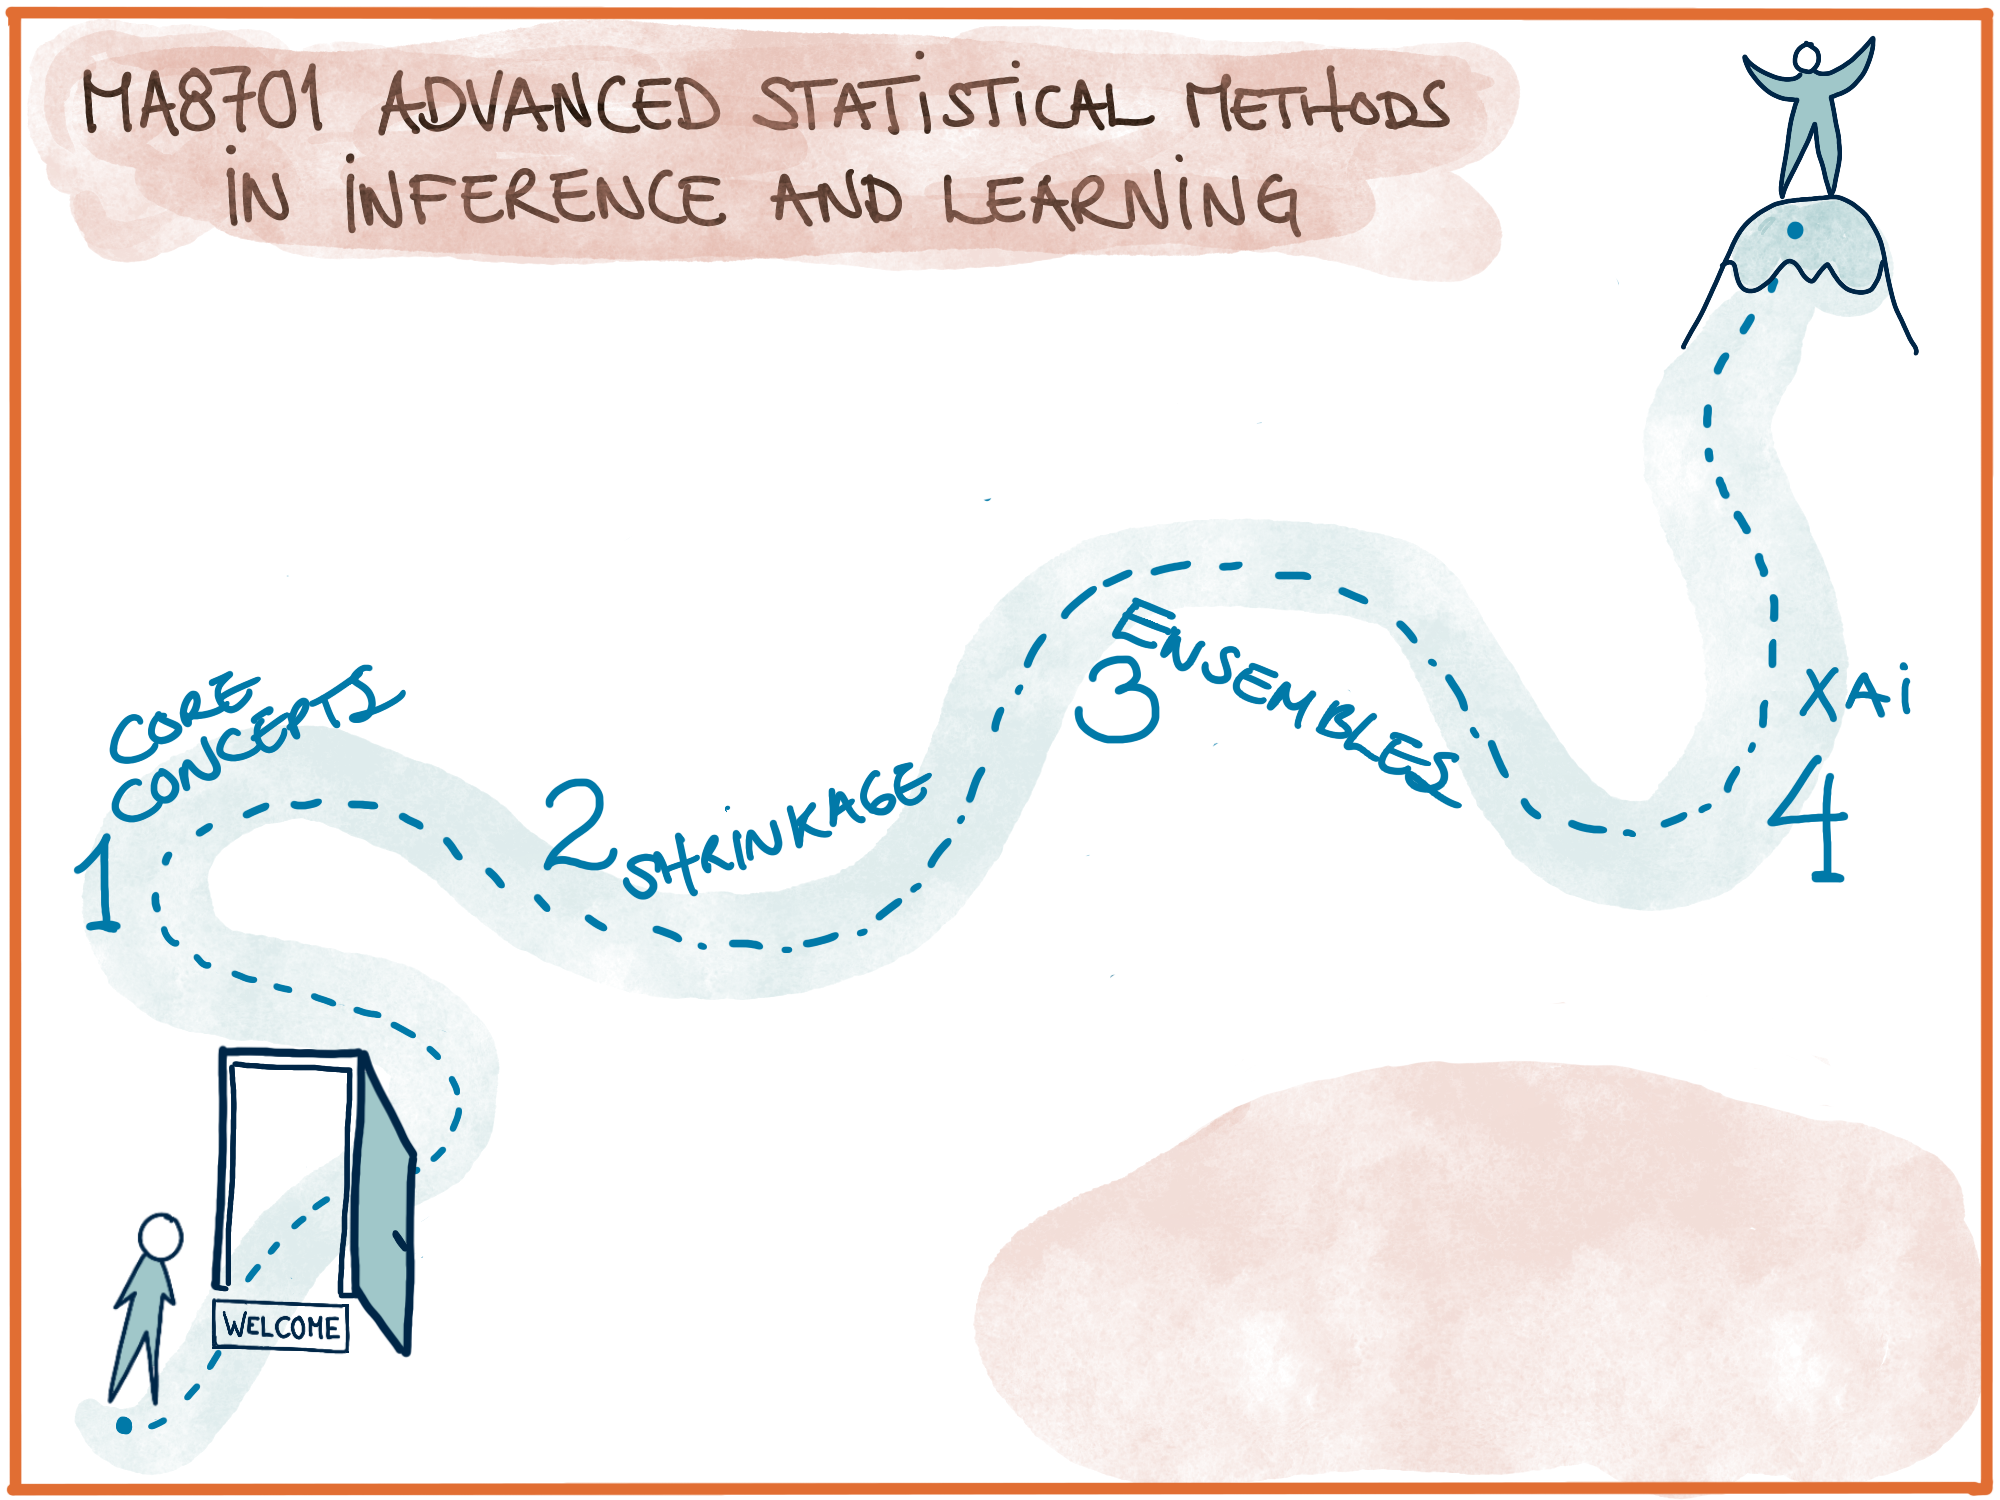 MA8701 ADVANCED STATiSTiCAL METHODS
iN iNFERENCE AND LEARNiNG
CORE
CONCEPTS
1
2 SHRiNKAGE
ENSEMBLES
3
XAi
4
WELCOME